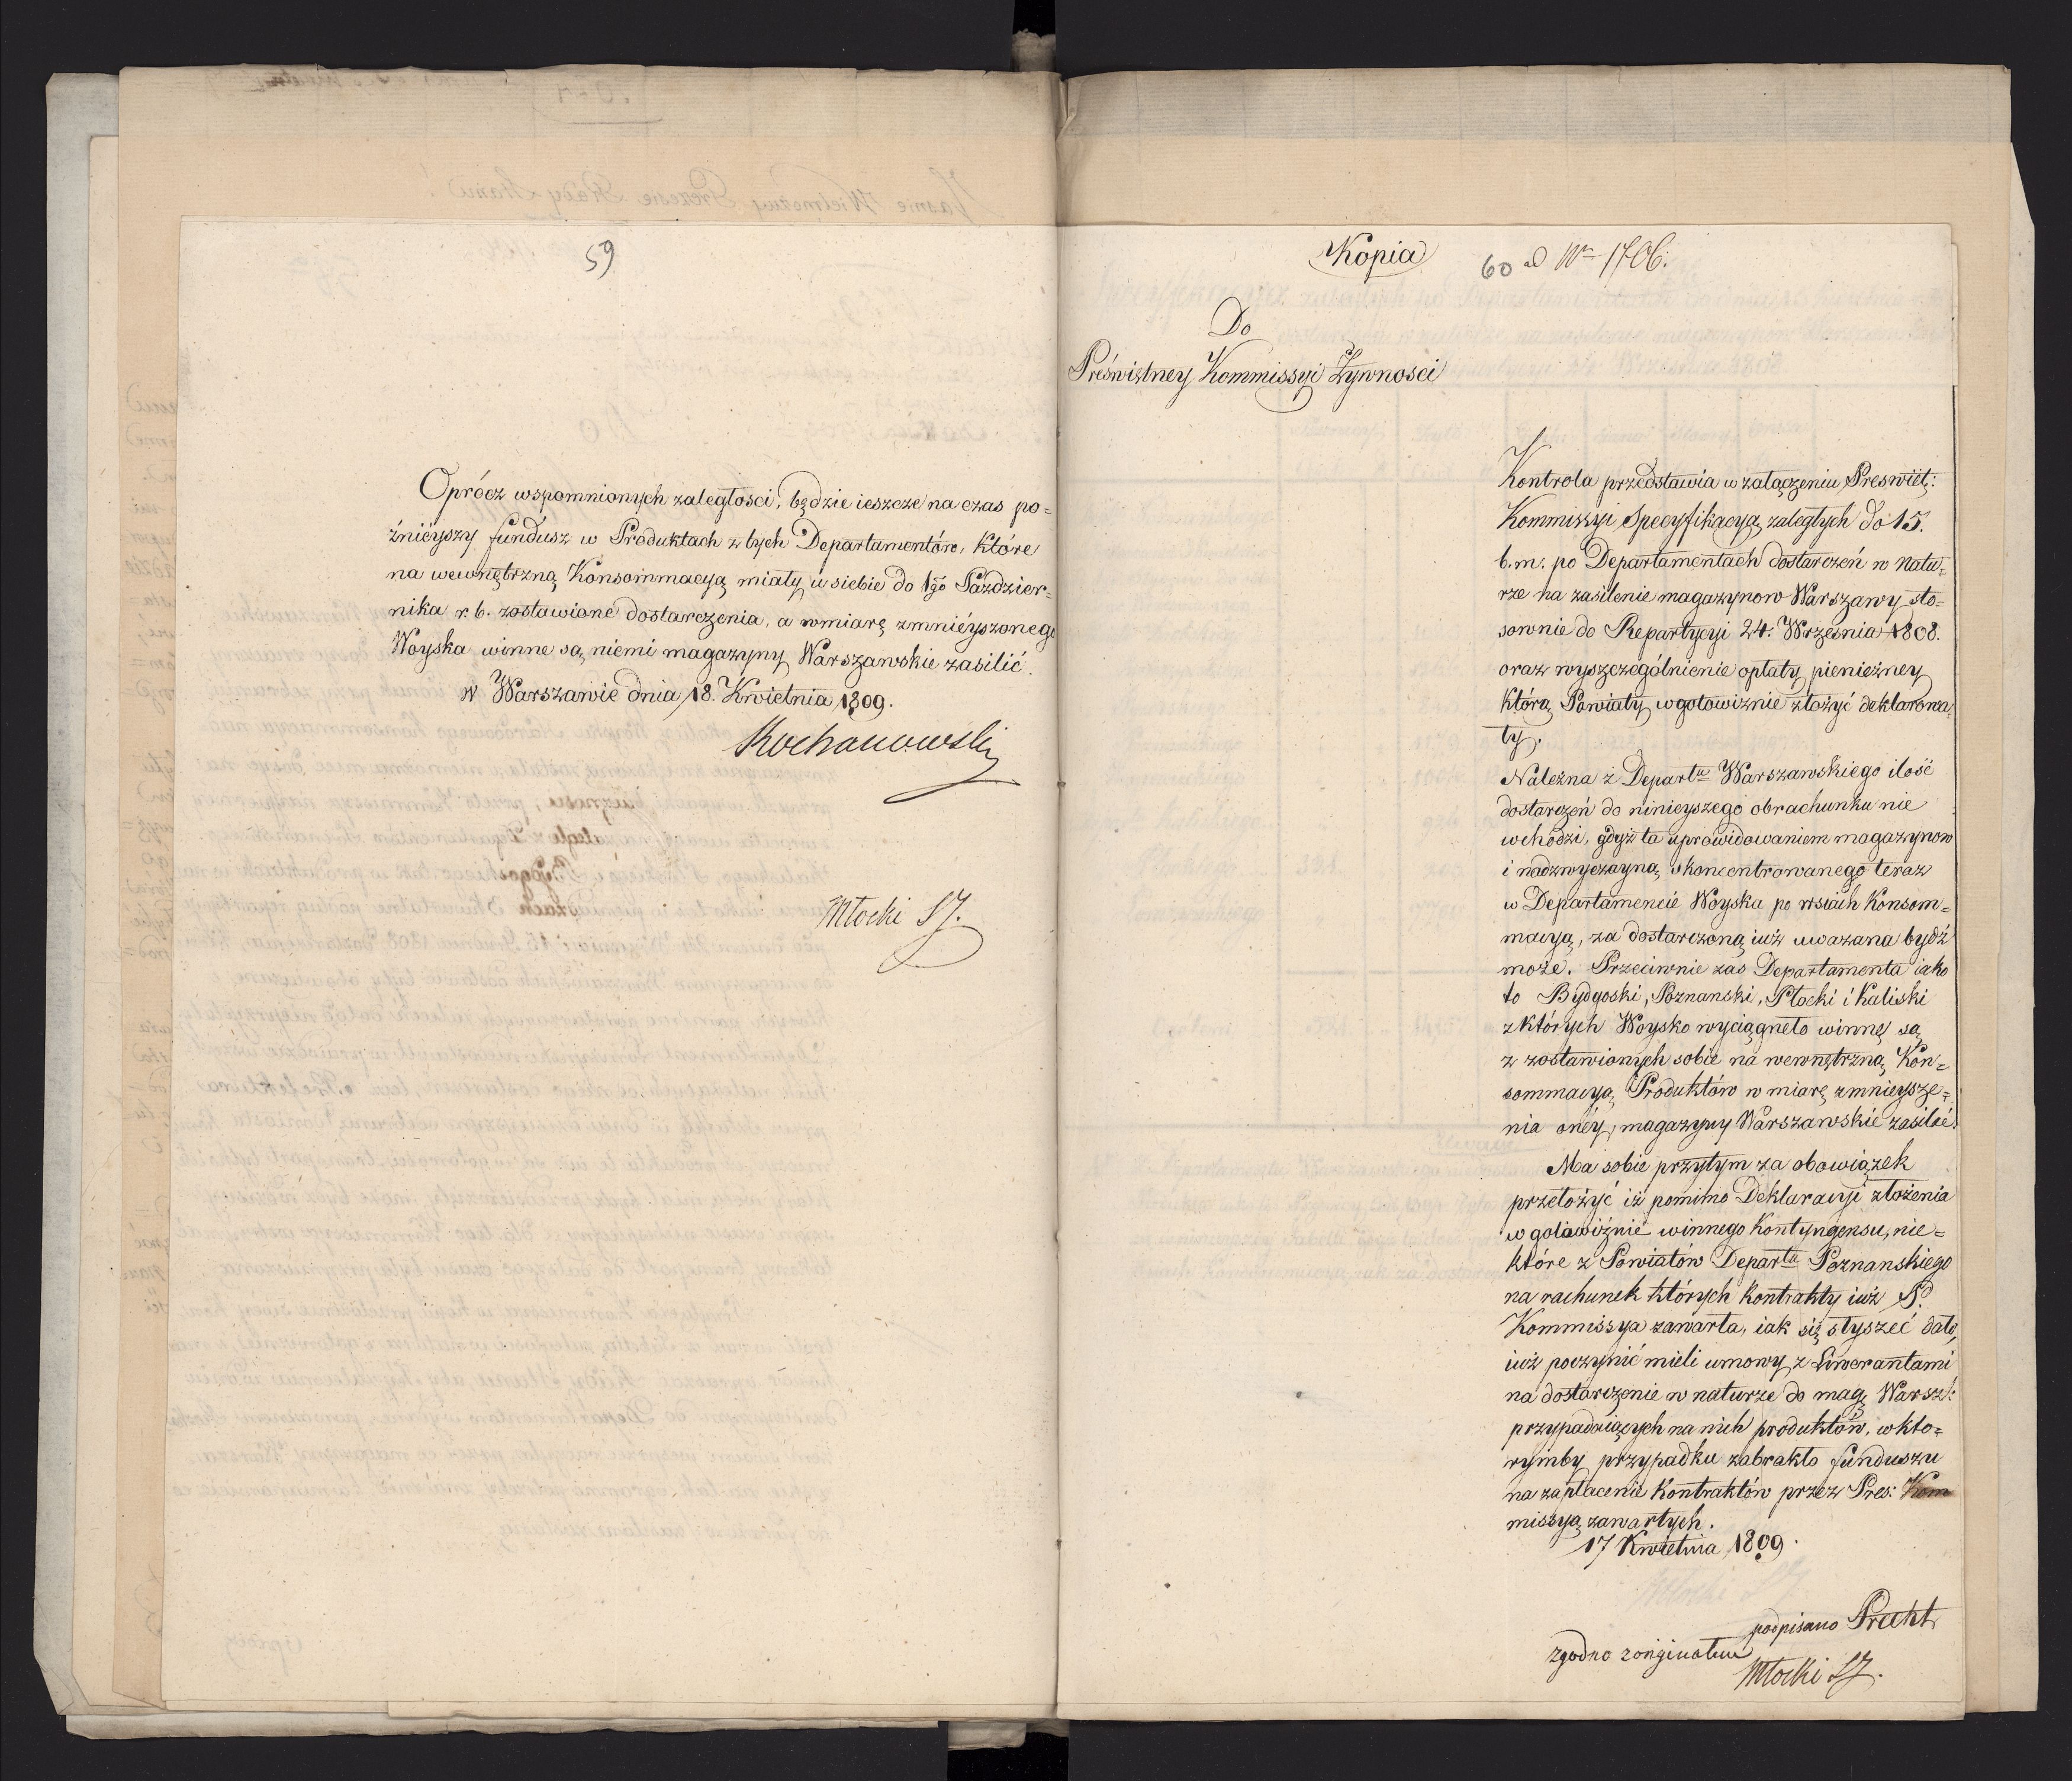 59
Oprócz wspomnionych zaległosci, będzie ieszcze na czas po=
źnieyszy fundusz w Produktach z tych Departamentów, które
na wewnętrzną Konsommacyą miały u siebie do 1go Paździer=
nika r. b. zostawione dostarczenia, a w miarę zmnieyszonego
Woyska winne są niemi magazyny Warszawskie zasilić.
w Warszawie dnia 18. Kwietnia 1809.
Kochanowski
Młocki SJ.
Kopia
60 ad Nro 1706.
Do
Prześwietney Kommissyi Zywnosci
Kontrola przedstawia w załączeniu Preswiet:
Kommissyi Specyfikacyą zaległych do 15.
b. m. po Departamentach dostarczeń w natu=
rze na zasilenie magazynow Warszawy sto=
sownie do Repartycyi 24. Września 1808.
oraz wyszczególnienie opłaty pienieżney
którą Powiaty w gotowiznie złożyć deklarowa=
ły.
Należna z Departu Warszawskiego ilość
dostarczeń do ninieyszego obrachunku nie
wchodzi, gdyż ta uprowidowaniem magazynow
i nadzwyczayną skoncentrowanego teraz
w Departamencie Woyska po wsiach Konsom=
macyą, za dostarczoną iuż uwazana bydź
może. Przeciwnie zas Departamenta iako
to Bydgoski, Poznanski, Płocki i Kaliski
z których Woysko wyciągneło winne są
z zostawionych sobie na wewnętrzną Kon=
sommacyą Produktów w miarę zmnieysze=
nia onéy, magazyny Warszawskie zasilić.
Ma sobie przytym za obowiązek
przełożyć iż pomimo Deklaracyi złożenia
w gotowiźnie winnego Kontyngensu, nie=
które z Powiatów Departu Poznanskiego
na rachunek których Kontrakty iuż P.
Kommissya zawarła, iak się słyszeć dało,
iuż poczynić mieli umowy z Liwerantami
na dostarczenie w naturze do mag. Warsz:
przypadaiących na nich produktów, w któ=
rymby przypadku zabrakło funduszu
na zapłacenie Kontraktów przez Pres: Kom
missyą zawartych.
17 Kwietnia 1809.
podpisano Precht
zgodno z originałem
Młocki SJ.